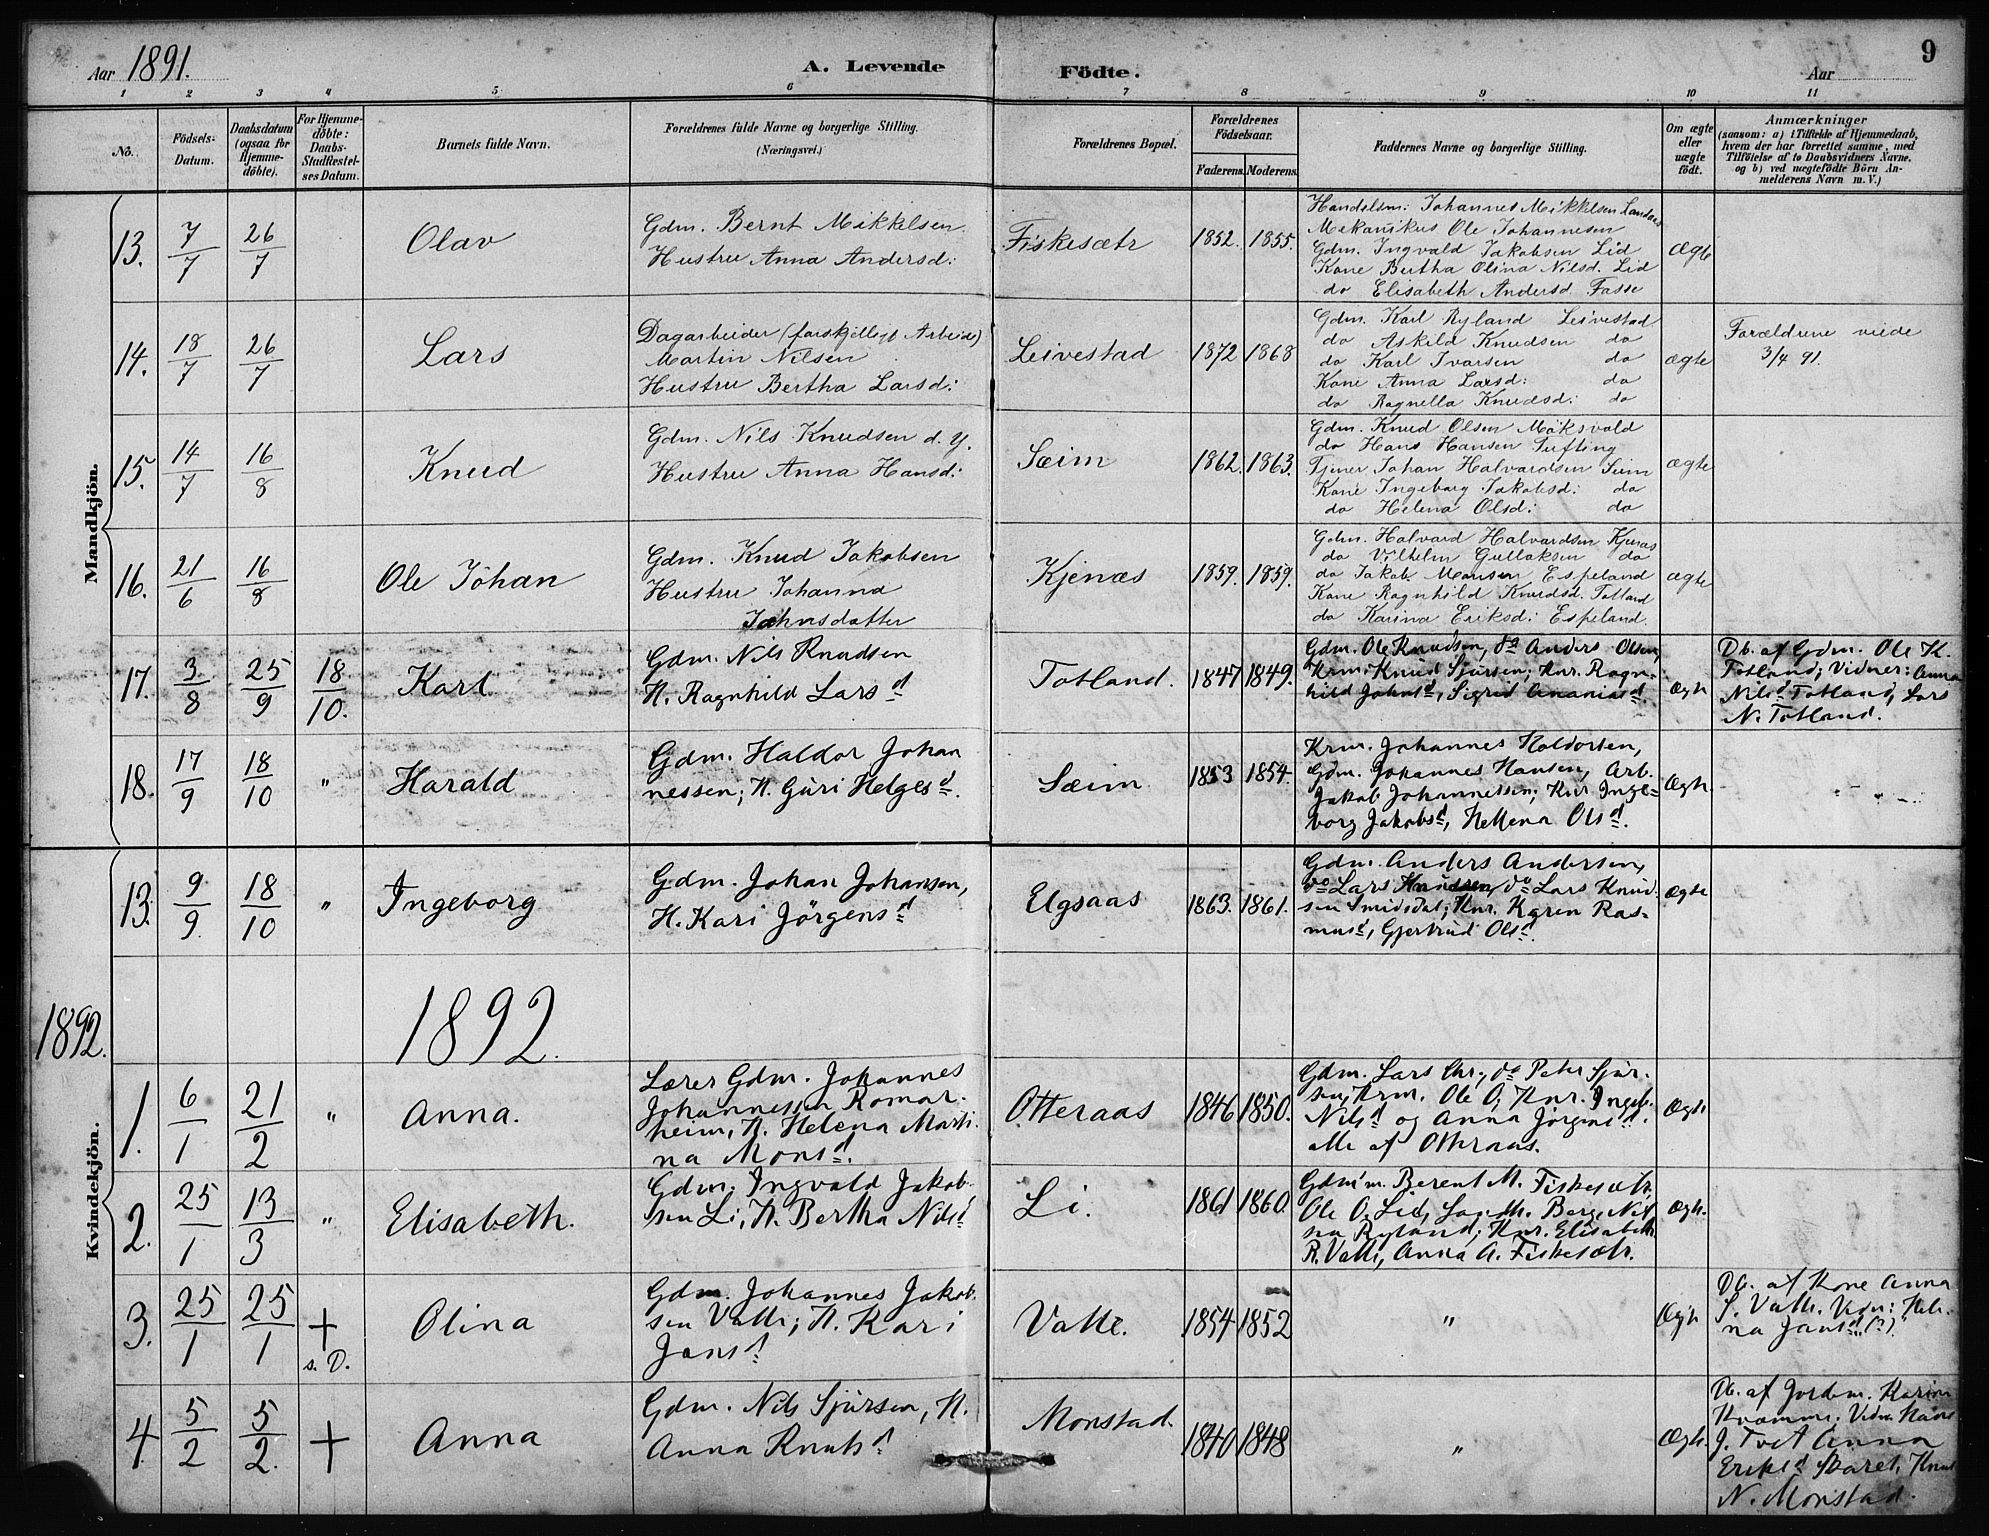 Aar 1891.
A. Levende
Födte.
Aar
9
1 2 3 4 5 6 7 8 9 10 11
No.
Födsels-
Datum.
Daabsdatum
(ogsaa for
Hjemme-
döbte).
For Hjemme-
döbte:
Daabs-
Stadfæstel-
ses Datum.
Barnets fulde Navn.
Forældrenes fulde Navne og borgerlige Stilling.
(Næringsvei.)
Forældrenes Bopæl.
Forældrenes
Födselsaar.
Faderens. Moderens.
Faddernes Navne og borgerlige Stilling.
Om ægte
eller
uægte
födt.
Anmærkninger
(saasom: a) i Tilfælde af Hjemmedaab,
hvem der har forrettet samme, med
Tilföielse af to Daabsvidners Navne,
og b) ved uægtefödte Börn An-
melderens Navn m. V.)
Mandkjön.
13. 7/7 26/7
Olav
Gdm. Bernt Mikkelsen
Hustru Anna Andersd:
Fiskesætr
1852. 1855.
Handelsm: Johannes Mikkelsen
Mekanikus Ole Johannesen
Gdm. Ingvald Jakobsen Lid
Kone Bertha Olina Nilsd. Lid
do Elisabeth Andersd. Fasse
Ægte
14. 18/7 26/7
Lars
Dagarbeider (forskjelligt Arbeide)
Martin Nilsen
Hustru Bertha Larsd:
Leivestad
1872 1868
Gdm. Karl Ryland Leivestad
do Askild Knudsen do
do Karl Ivarsen do
Kone Anna Larsd: do
do Ragnella Knudsd: do
ægte
Forældrene viede
3/4 91.
15. 14/7 16/8
Knud
Gdm. Nils Knudsen d. y.
Hustru Anna Hansd:
Sæim
1862. 1863.
Gdm. Knud Olsen
do Hans Hansen
Tjener Johan Halvardsen Seim
Kone Ingeborg Jakobsd: do
do Helena Olsd: do
ægte
16. 21/6 16/8
Ole Johan
Gdm. Knud Jakobsen
Hustru Johanna
Johnsdatter
Kjenæs
1859. 1859.
Gdm. Halvard Halvardsen Kjenæs
do Vilhelm Gullaksen do
do Jakob Monsen Espeland
Kone Ragnhild Knudsd. Totland
do Karina Eriksd: Espeland
ægte
17. 3/8 25/9 18/10.
Karl
Gdm. Nils Knudsen
H. Ragnhild Larsd
Totland.
1847 1849.
Gdm. Ole Knudsen, do Anders Olsen,
Krm. Knud Sjursen; Knr. Ragn-
hild Johnsd, Sigrid Ananiasd.
Ægte
Db. af Gdm. Ole K.
Totland; Vidner: Anna
Nilsd Totland, Lars
N. Totland.
18. 17/9 18/10 "
Harald
Gdm. Haldor Johan
nessen; H. Guri Helgesd.
Sæim
1853 1854.
Krm. Johannes Haldorsen,
Gdm. Johannes Hansen, Arb.
Jakob Johannessen; Knr. Inge-
borg Jakobsd, Hellena Olsd.
Ægte.
Kvindekjön.
13. 9/9. 18/10 "
Ingeborg
Gdm. Johan Johansen,
H. Kari Jörgensd
Elgsaas
1863. 1861.
Gdm. Anders Andersen,
do Lars Knudsen, do Lars Knud-
sen Smidsdal; Knr. Karen Ras-
musd, Gjertrud Olsd.
Ægte
1892.
1892.
1. 6/1 21/2 "
Anna.
Lærer Gdm. Johannes
Johannessen Romar-
heim, H. Helena Marti-
na Monsd.
Otteraas
1846 1850.
Gdm. Lars Chr., do Peter Sjur-
sen, Krm. Ole O., Knr. Ingeb.
Nilsd og Anna Jörgensd.
alle af Otteraas.
Ægte
2. 25/1 13/3 "
Elisabeth.
Gdm. Ingvald Jakob-
sen Li, H. Bertha Nilsd
Li.
1861 1860
Gdm'm. Berent M. Fiskesætr,
Ole O. Lid, Berge Nil
sen Ryland; Knr. Elisabeth
R. Valle, Anna A. Fiskesætr.
Ægte.
3. 25/1 25/1 +
s. D.
Olina
Gdm. Johannes Jakob-
sen Valle; H. Kari
Jansd
Valle.
1854 1852
"
Ægte
Db. af Kone Anna
S. Valle. Vidn: Hele-
na Jansd (?)
4. 5/2 5/2. +
Anna
Gdm. Nils Sjursen, H.
Anna Knutsd
Monstad.
1840 1848
"
Ægte.
Db. af Jordem. Karina
Kvamme. Vidn. Hans
J. Tvet Anna
Eriksd Skaret, Knut
N. Monstad.